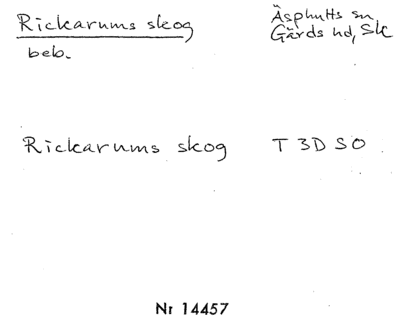 Rickarums skog
Äsphults sn
Gärds hd, Sk
beb.
Rickarums skog T 3D SO
Nr 14457